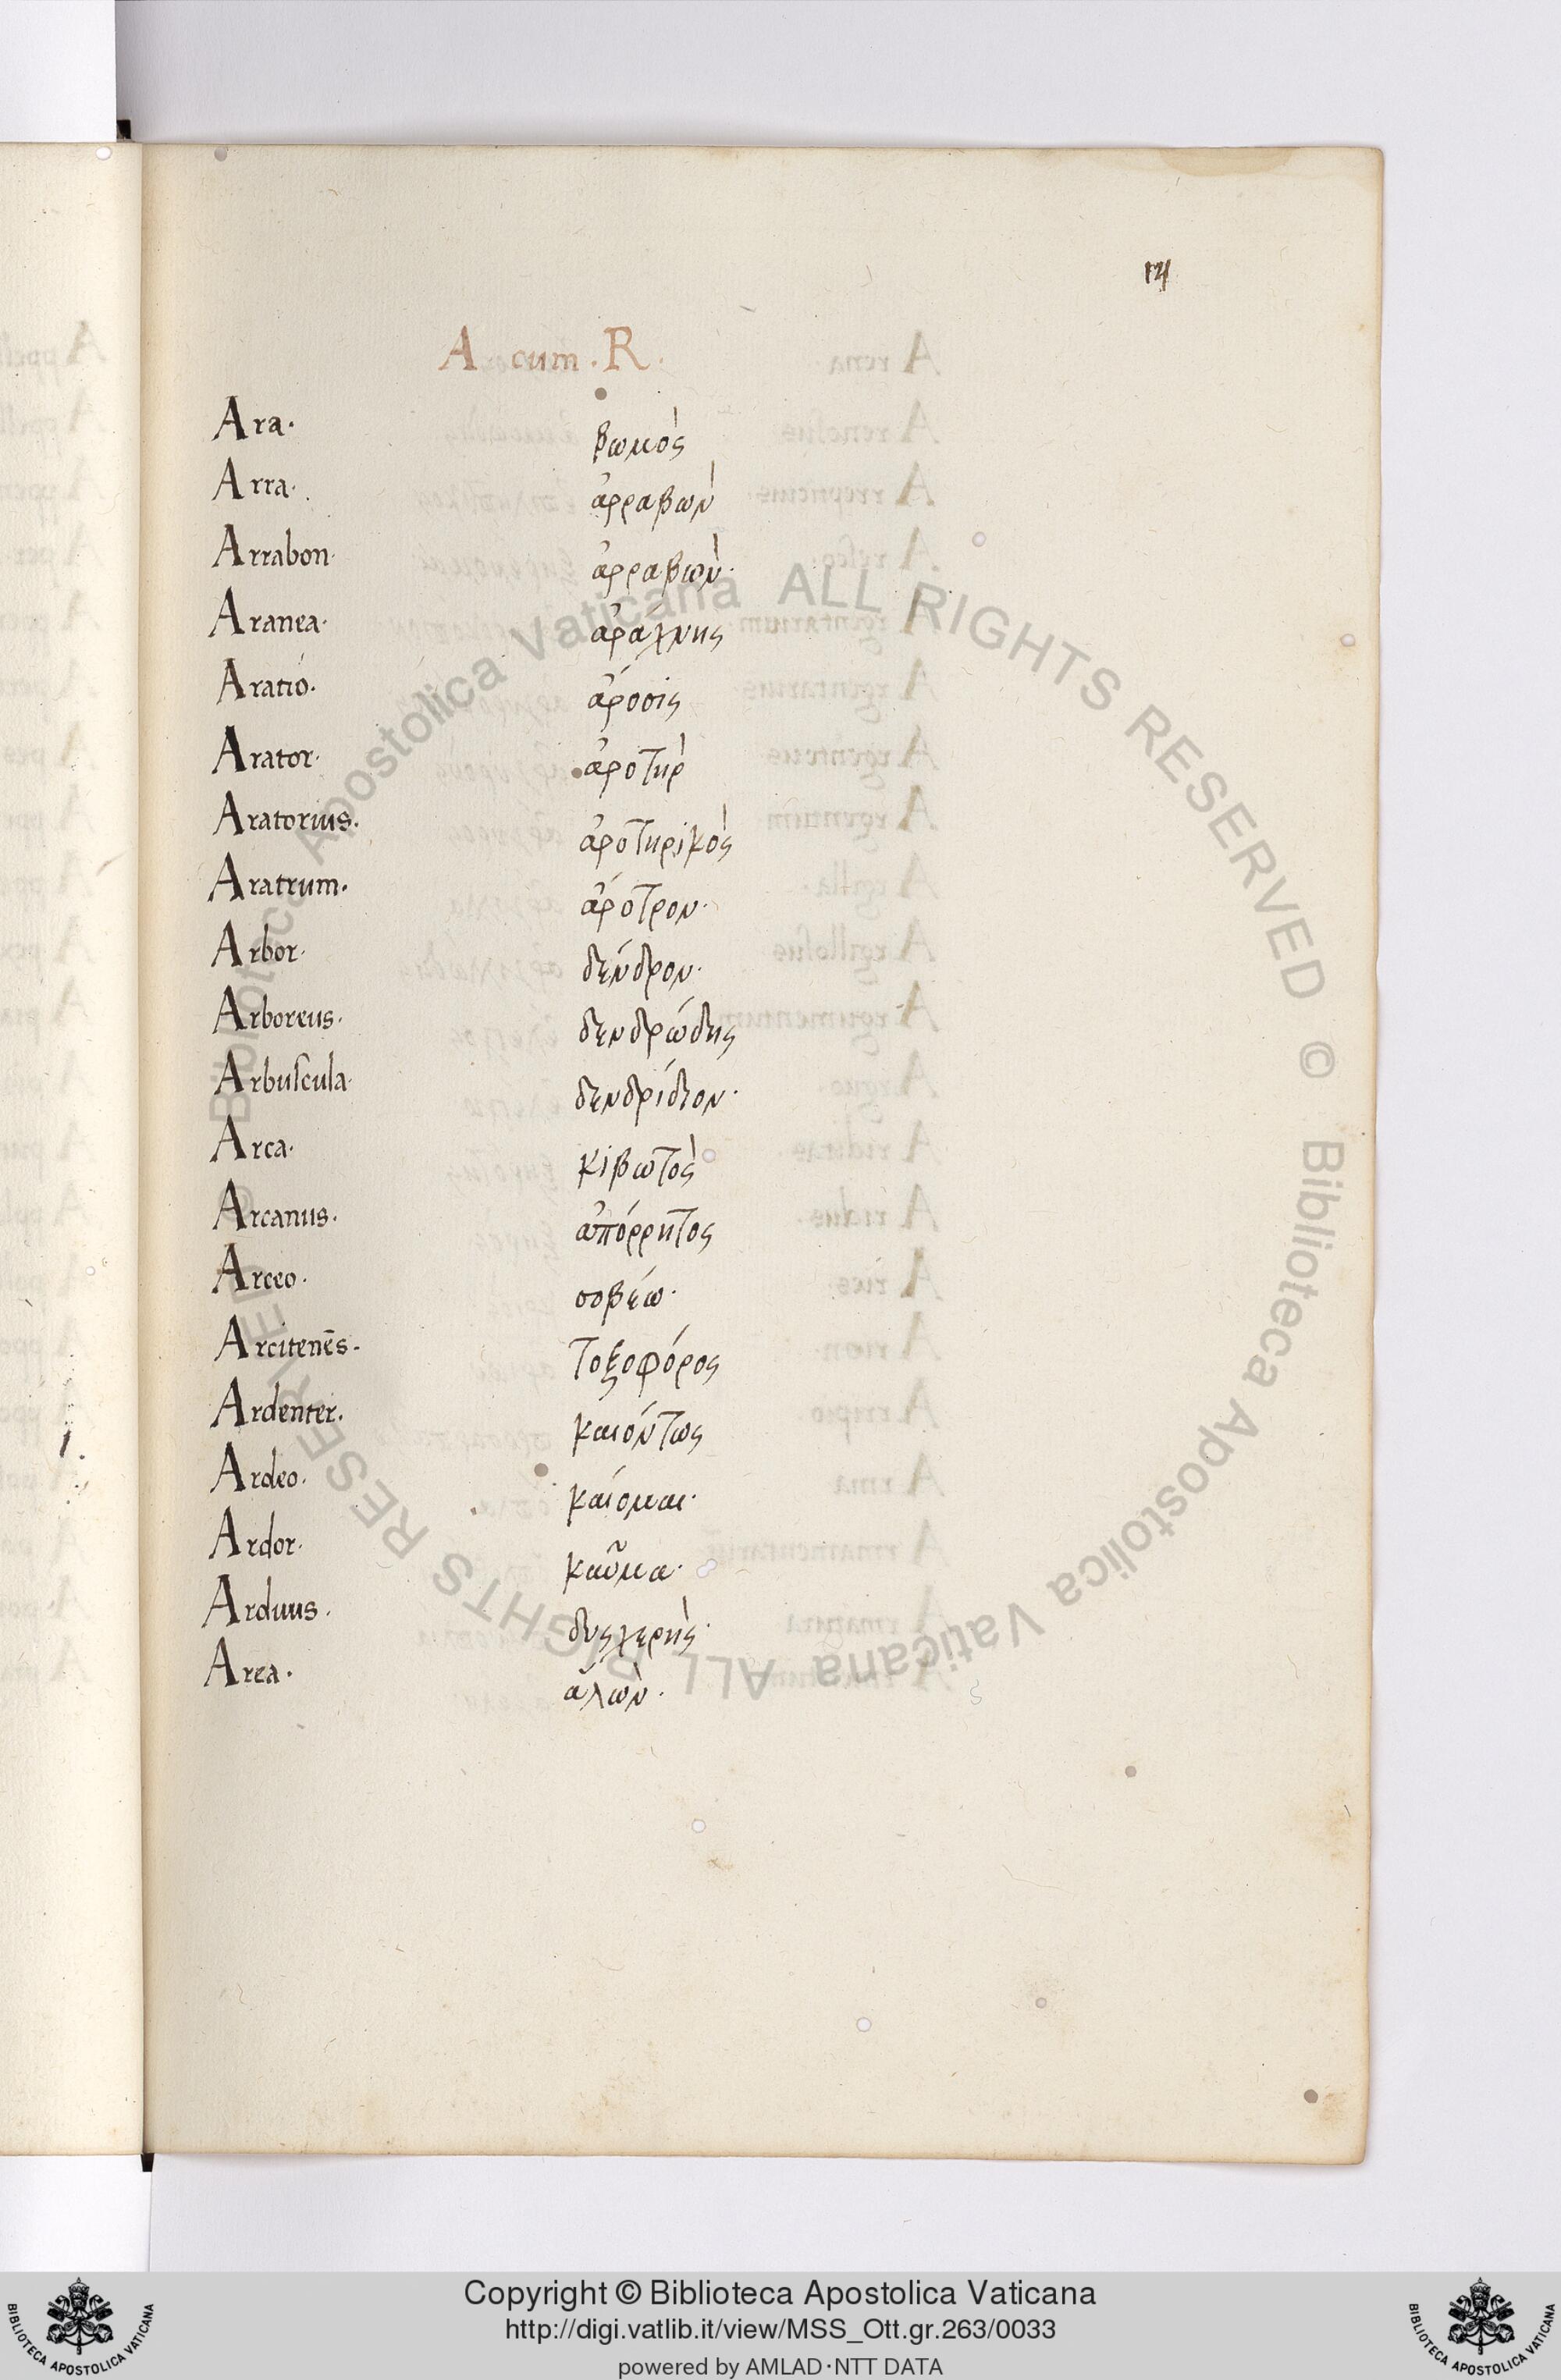 14
A cum . R .
Ara. βωμὸς
Arra. ἀρραβὼν
Arrabon. ἀρραβὼν.
Aranea. ἀράχνης
Aratio. ἄροσις
Arator. ἀροτὴρ
Aratorius. ἀροτηρικὸς
Aratrum. ἄροτρον.
Arbor. δένδρον.
Arboreus. δενδρώδης
Arbuscula. δενδρίδιον.
Arca. κιβωτὸς
Arcanus. ἀπόρρητος
Arceo. σοβέω.
Arcitenēs. τοξοφόρος
Ardenter. καιόντως
Ardeo. καίομαι.
Ardor. καῦμα.
Arduus. δυσχερὴς.
Area. ἅλων.
Biblioteca Apostolica Vaticana ALL RIGHTS RESERVED ©
Biblioteca Apostolica Vaticana ALL RIGHTS RESERVED ©
Copyright © Biblioteca Apostolica Vaticana
http://digi.vatlib.it/view/MSS_Ott.gr.263/0033
powered by AMLAD·NTT DATA
BIBLIOTECA APOSTOLICA VATICANA
BIBLIOTECA APOSTOLICA VATICANA